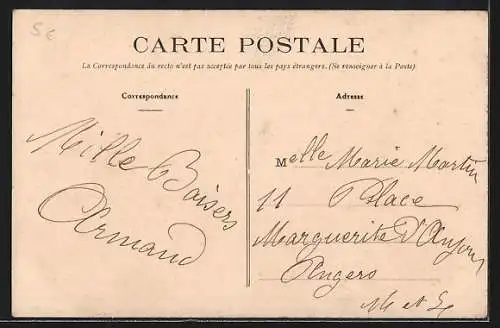 5€
CARTE POSTALE
La Correspondance du recto n'est pas acceptée par tous les pays étrangers. (Se renseigner à la Poste)
Correspondance
Mille Baisers
Armand
Adresse
Melle Marie Martin
11 Place
Marguerite D'Anjou
Angers
M et L